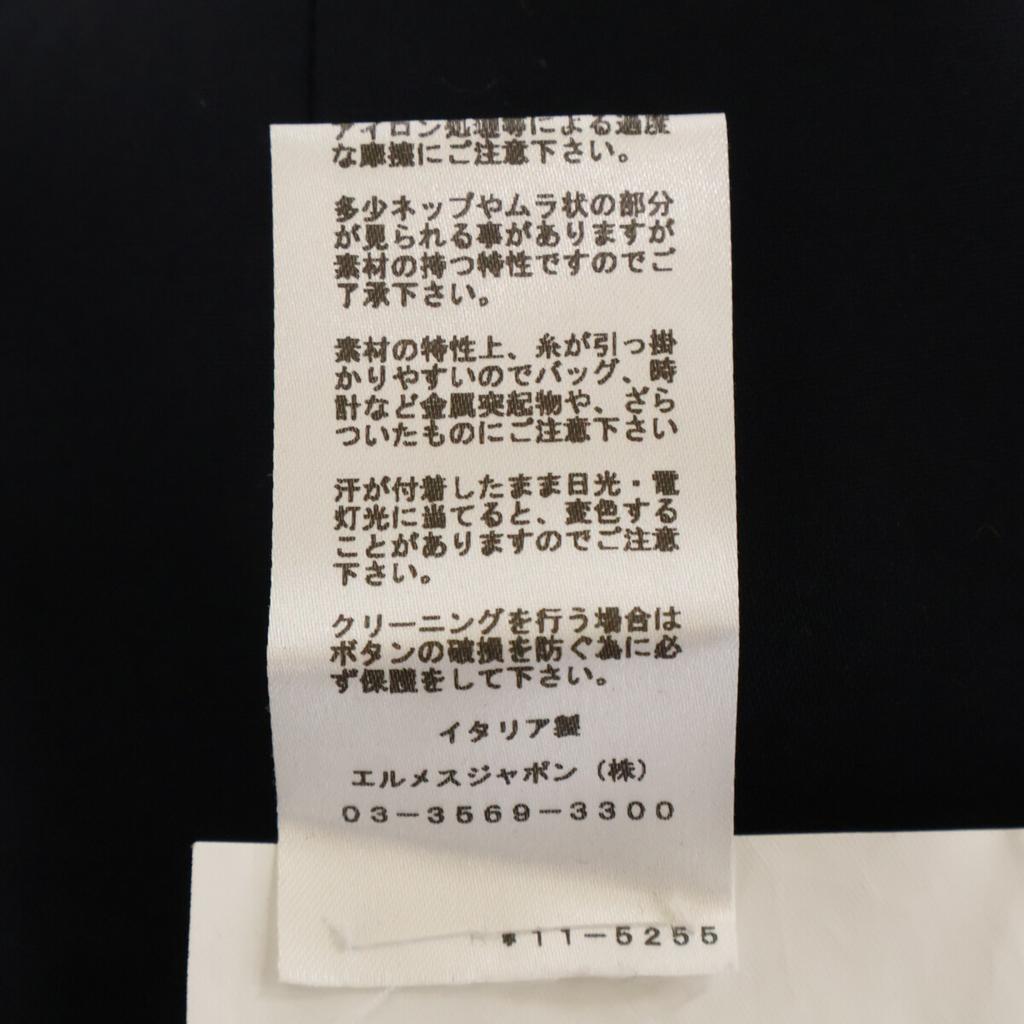 アイロン処理等による過度
な摩擦にご注意下さい。
多少ネップやムラ状の部分
が見られる事がありますが
素材の持つ特性ですのでご
了承下さい。
素材の特性上、糸が引っ掛
かりやすいのでバッグ、時
計など金属突起物や、ざら
ついたものにご注意下さい
汗が付着したまま日光・電
灯光に当てると、変色する
ことがありますのでご注意
下さい。
クリーニングを行う場合は
ボタンの破損を防ぐ為に必
ず保護をして下さい。
イタリア製
エルメスジャポン（株）
03-3569-3300
11-5255